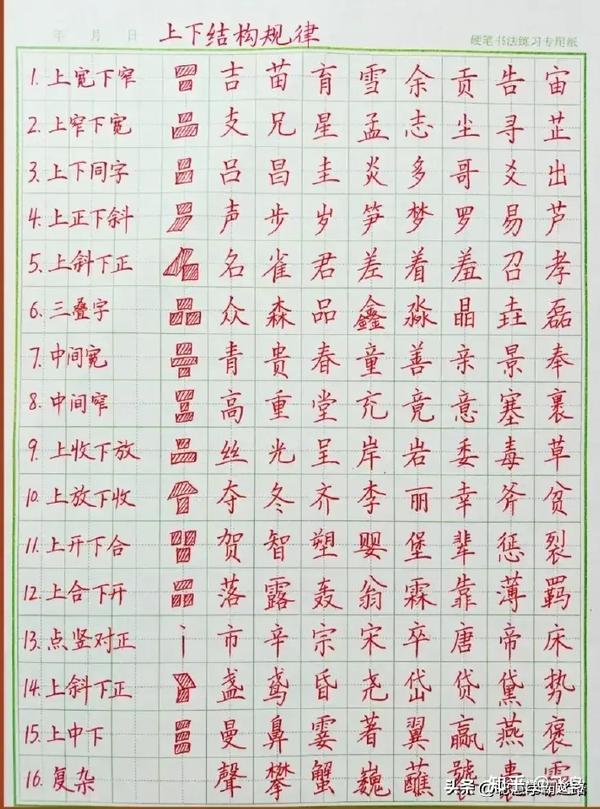 年 月 日 上下结构规律 硬笔书法练习专用纸
1. 上宽下窄 吉 苗 育 雪 余 贡 告 宙
2. 上窄下宽 支 兄 星 孟 志 尘 寻 芷
3. 上下同字 吕 昌 圭 炎 多 哥 爻 出
4. 上正下斜 声 步 岁 笋 梦 罗 易 芦
5. 上斜下正 名 雀 君 差 着 羞 召 孝
6. 三叠字 众 森 品 鑫 淼 晶 垚 磊
7. 中间宽 青 贵 春 童 善 亲 景 奉
8. 中间窄 高 重 堂 充 竟 意 塞 裹
9. 上收下放 丝 光 呈 岸 岩 委 毒 草
10. 上放下收 夺 冬 齐 李 丽 幸 斧 贫
11. 上开下合 贺 智 塑 婴 堡 辈 惩 裂
12. 上合下开 落 露 轰 翁 霖 靠 薄 羁
13. 点竖对正 市 辛 宗 宋 卒 唐 帝 床
14. 上斜下正 盏 鸢 昏 尧 岱 贷 黛 势
15. 上中下 曼 鼻 霎 著 翼 赢 燕 褒
16. 复杂 聲 攀 蟹 巍 蘸